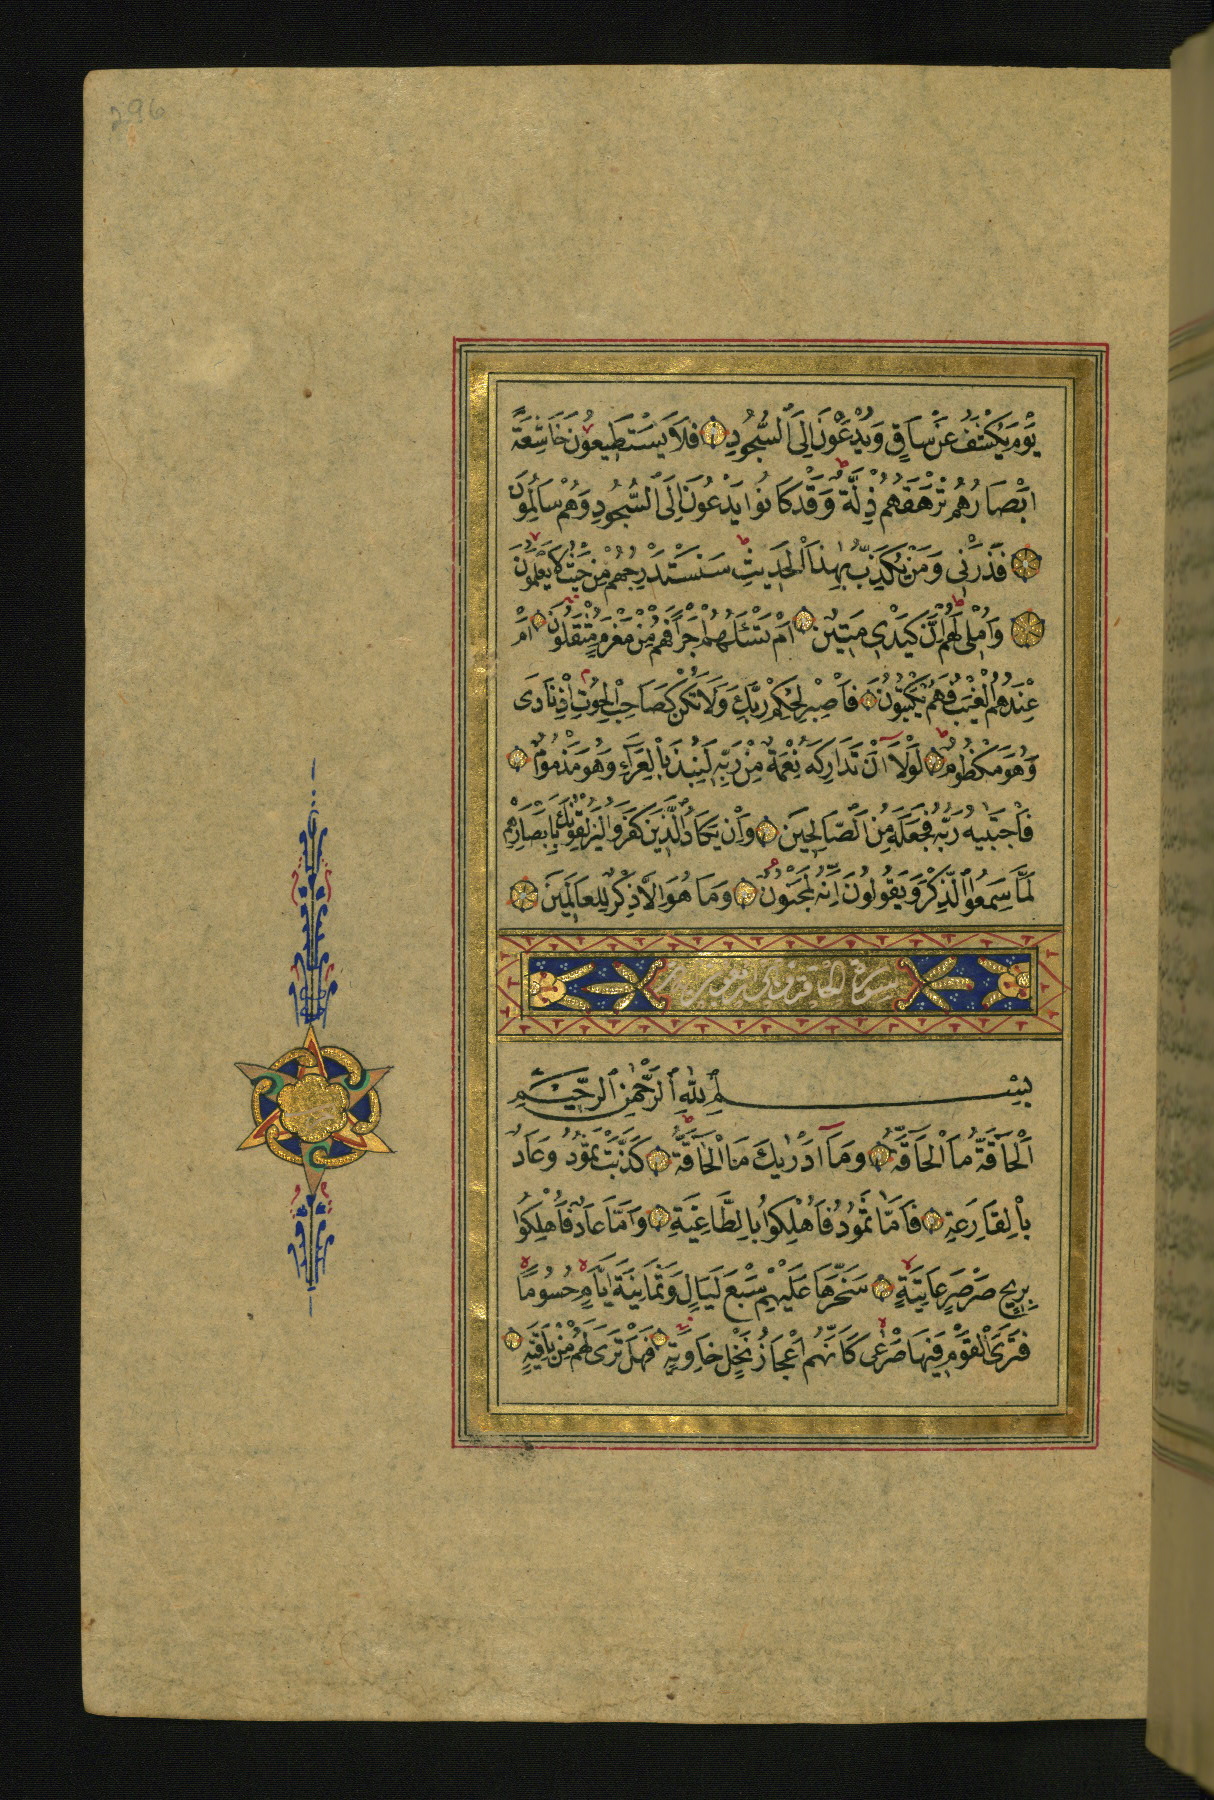 296
يَوْمَ يُكْشَفُ عَنْ سَاقٍ وَيُدْعَوْنَ اِلَى السُّجُودِ فَلَا يَسْتَطِيعُونَ خَاشِعَةً
اَبْصَارُهُمْ تَرْهَقُهُمْ ذِلَّةٌ وَقَدْ كَانُوا يُدْعَوْنَ اِلَى السُّجُودِ وَهُمْ سَالِمُونَ
فَذَرْنِى وَمَنْ يُكَذِّبُ بِهٰذَا الْحَدِيثِ سَنَسْتَدْرِجُهُمْ مِنْ حَيْثُ لَا يَعْلَمُونَ
وَاُمْلِى لَهُمْ اِنَّ كَيْدِى مَتِينٌ اَمْ تَسْئَلُهُمْ اَجْرًا فَهُمْ مِنْ مَغْرَمٍ مُثْقَلُونَ اَمْ
عِنْدَهُمُ الْغَيْبُ فَهُمْ يَكْتُبُونَ فَاصْبِرْ لِحُكْمِ رَبِّكَ وَلَا تَكُنْ كَصَاحِبِ الْحُوتِ اِذْ نَادَى
وَهُوَ مَكْظُومٌ لَوْلَا اَنْ تَدَارَكَهُ نِعْمَةٌ مِنْ رَبِّهِ لَنُبِذَ بِالْعَرَاءِ وَهُوَ مَذْمُومٌ
فَاجْتَبٰيهُ رَبُّهُ فَجَعَلَهُ مِنَ الصَّالِحِينَ وَاِنْ يَكَادُ الَّذِينَ كَفَرُوا لَيُزْلِقُونَكَ بِاَبْصَارِهِمْ
لَمَّا سَمِعُوا الذِّكْرَ وَيَقُولُونَ اِنَّهُ لَمَجْنُونٌ وَمَا هُوَ اِلَّا ذِكْرٌ لِلْعَالَمِينَ
سورة الحاقة
بِسْمِ اللّٰهِ الرَّحْمٰنِ الرَّحِيمِ
اَلْحَاقَّةُ مَا الْحَاقَّةُ وَمَا اَدْرٰيكَ مَا الْحَاقَّةُ كَذَّبَتْ ثَمُودُ وَعَادٌ
بِالْقَارِعَةِ فَاَمَّا ثَمُودُ فَاُهْلِكُوا بِالطَّاغِيَةِ وَاَمَّا عَادٌ فَاُهْلِكُوا
بِرِيحٍ صَرْصَرٍ عَاتِيَةٍ سَخَّرَهَا عَلَيْهِمْ سَبْعَ لَيَالٍ وَثَمَانِيَةَ اَيَّامٍ حُسُومًا
فَتَرَى الْقَوْمَ فِيهَا صَرْعٰى كَاَنَّهُمْ اَعْجَازُ نَخْلٍ خَاوِيَةٍ فَهَلْ تَرٰى لَهُمْ مِنْ بَاقِيَةٍ